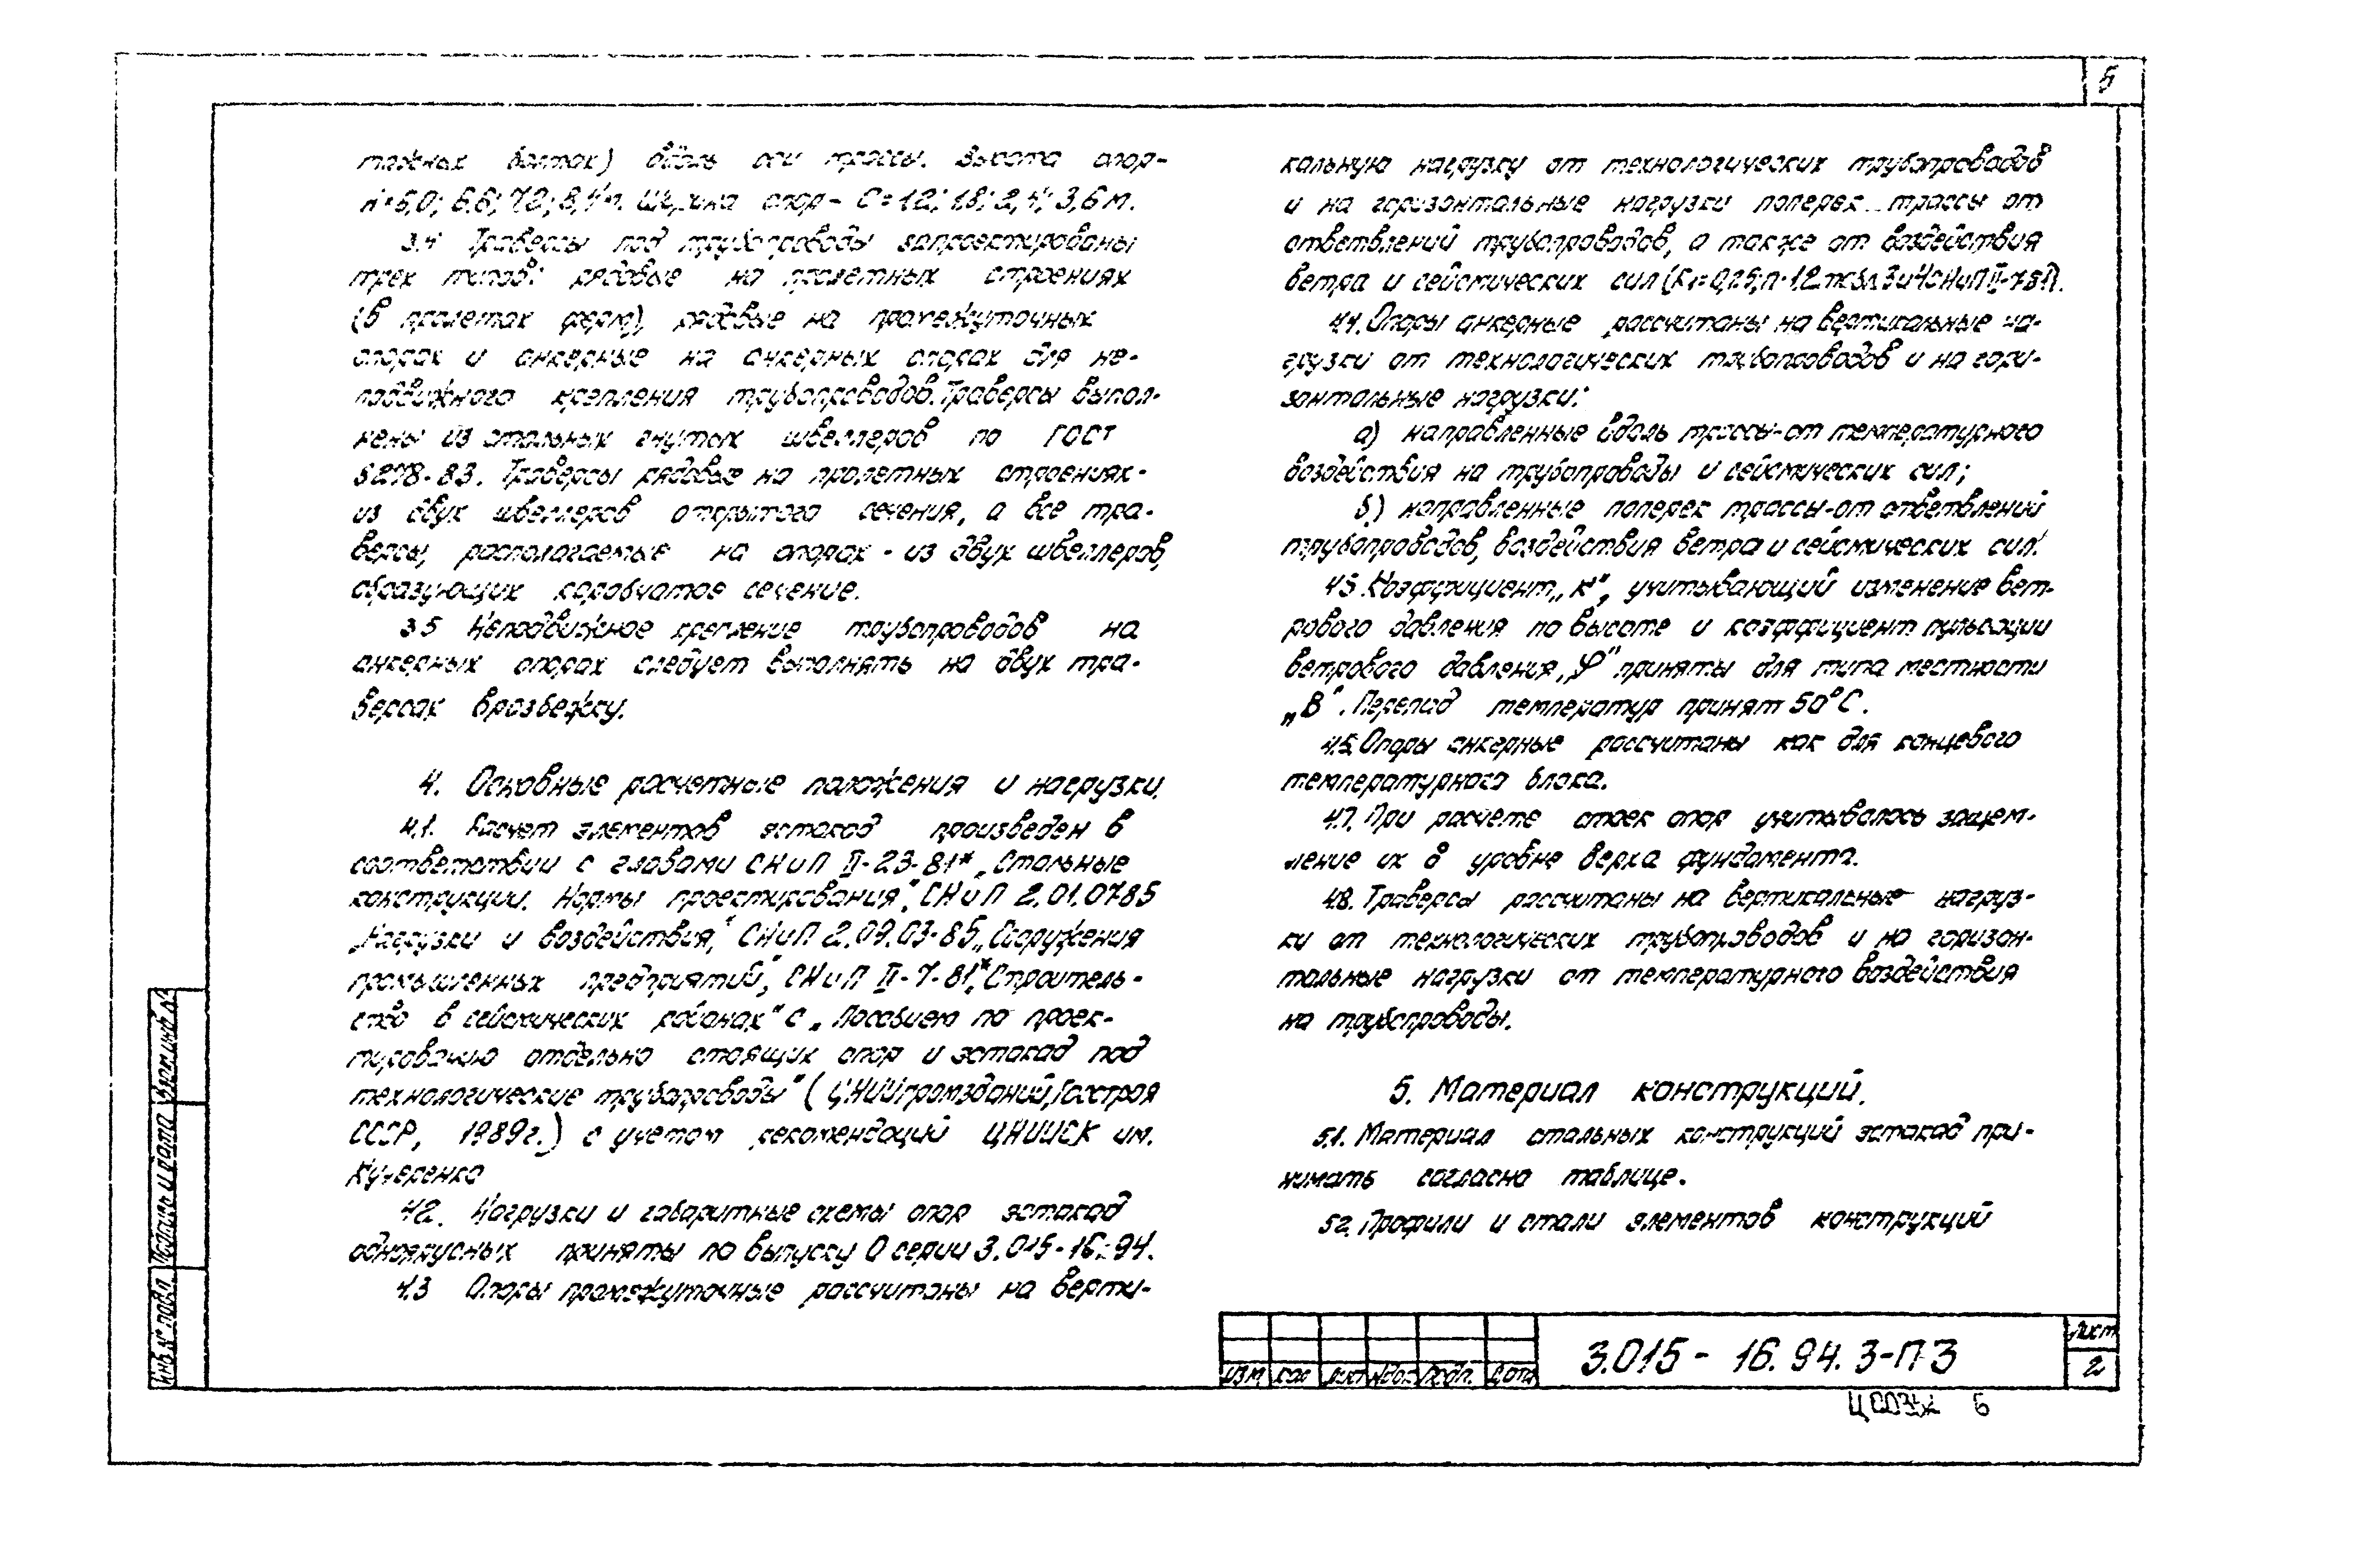 5
тажных болтах) вдоль оси трассы. Высота опор-
н=6,0; 6.6; 7.2; 8,4м. Ширина опор - С=1.2; 1.8; 2,4; 3,6м.
3.4 Траверсы под трубопроводы запроектированы
трех типов: рядовые на пролетных строениях
(в пролетах ферм), рядовые на промежуточных
опорах и анкерные на анкерных опорах для не-
подвижного крепления трубопроводов. Траверсы выпол-
нены из стальных гнутых швеллеров по ГОСТ
8278-83. Траверсы рядовые на пролетных строениях-
из двух швеллеров открытого сечения, а все тра-
версы, располагаемые на опорах - из двух швеллеров,
образующих коробчатое сечение.
3.5 Неподвижное крепление трубопроводов на
анкерных опорах следует выполнять на двух тра-
версах вразбежку.
4. Основные расчетные положения и нагрузки.
4.1. Расчет элементов эстакад произведен в
соответствии с главами СНиП II-23-81* „Стальные
конструкции. Нормы проектирования", СНиП 2.01.07-85
„Нагрузки и воздействия", СНиП 2.09.03-85 „Сооружения
промышленных предприятий", СНиП II-7-81* „Строитель-
ство в сейсмических районах" с „Пособием по проек-
тированию отдельно стоящих опор и эстакад под
технологические трубопроводы" (ЦНИИпромзданий, Госстроя
СССР, 1989г.) с учетом рекомендаций ЦНИИСК им.
Кучеренко
4.2. Нагрузки и габаритные схемы опор эстакад
одноярусных приняты по выпуску 0 серии 3.015-16.94.
4.3 Опоры промежуточные рассчитаны на верти-
кальную нагрузку от технологических трубопроводов
и на горизонтальные нагрузки поперек трассы от
ответвлений трубопроводов, а также от воздействия
ветра и сейсмических сил (К1=0,25; п.1.2 табл 3 и 4 СНиП II-7-81).
4.4. Опоры анкерные рассчитаны на вертикальные на-
грузки от технологических трубопроводов и на гори-
зонтальные нагрузки:
а) направленные вдоль трассы-от температурного
воздействия на трубопроводы и сейсмических сил;
б) направленные поперек трассы-от ответвлений
трубопроводов, воздействия ветра и сейсмических сил.
4.5. Коэффициент „К", учитывающий изменение вет-
рового давления по высоте и коэффициент пульсации
ветрового давления „φ" приняты для типа местности
„В". Перепад температур принят 50°С.
4.6. Опоры анкерные рассчитаны как для концевого
температурного блока.
4.7. При расчете стоек опор учитывалось защем-
ление их в уровне верха фундамента.
4.8. Траверсы рассчитаны на вертикальные нагруз-
ки от технологических трубопроводов и на горизон-
тальные нагрузки от температурного воздействия
на трубопроводы.
5. Материал конструкций.
5.1. Материал стальных конструкций эстакад при-
нимать согласно таблице.
5.2. Профили и стали элементов конструкций
Взам.инв.№
Подпись и дата
Инв.№ подл.
Изм Кол Лист №док Подп. Дата
3.015 - 16.94.3-ПЗ
Лист
2
6